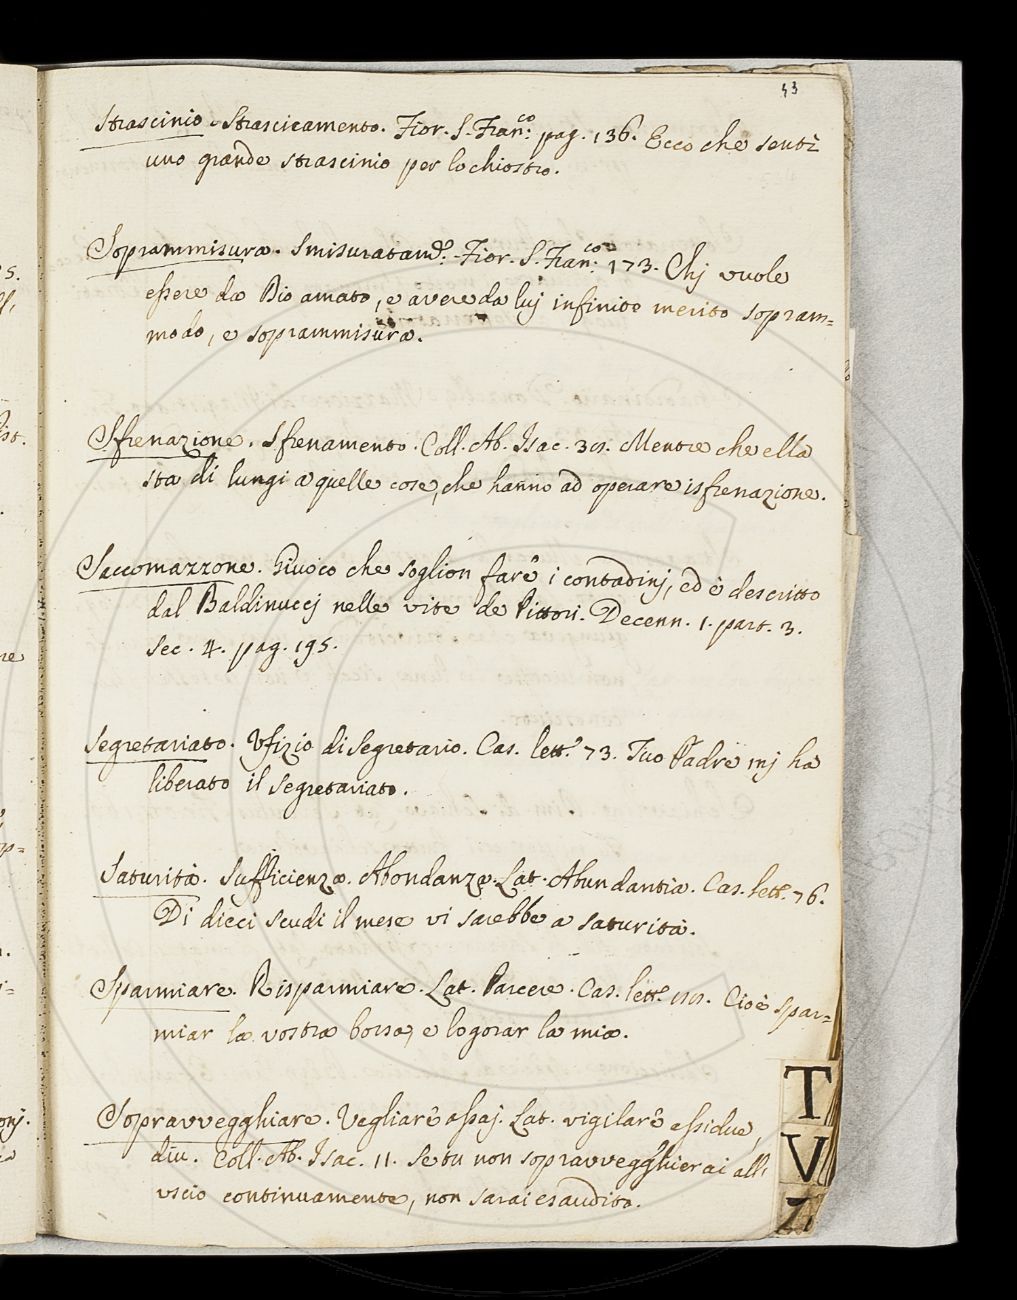 43
Strascinio. Strascicamento. Fior. S. Fran:co pag. 136. Ecco che sentì
uno grande strascinio per lo chiostro.
Soprammisura. Smisuratam.e Fior. S. Fran:co 173. Chj vuole
essere da Dio amato, e avere da luj infinito merito sopram=
modo, e soprammisura.
Sfrenazione. Sfrenamento. Coll. Ab. Isac. 30. Mentre che ella
sta di lungi a quelle cose, che hanno ad operare isfrenazione.
Saccomazzone. Giuoco che soglion fare i contadinj, ed è descritto
dal Baldinuccj nelle vite de Pittori. Decenn. 1. part. 3.
Sec. 4. pag. 195.
Segretariato. Ufizio di Segretario. Cas. lett. 73. Tuo Padre mj ha
liberato il segretariato.
Saturità. Sufficienza. Abondanza. Lat. Abundantia. Cas. lett. 76.
Di dieci scudi il mese vi sarebbe a saturità.
Sparmiare. Risparmiare. Lat. Parcere. Cas. lett. Cioè spar=
miar la vostra borsa, e logorar la mia.
Sopravvegghiare. Vegliare assaj. Lat. vigilare assidue,
diu. Coll. Ab. Isac. 11. Se tu non sopravvegghierai all'
uscio continuamente, non sarai esaudito.
T
V
Z